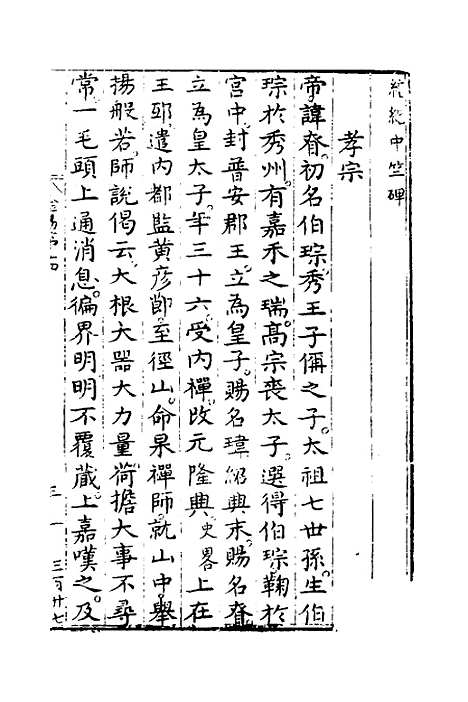 統紀中竺碑
孝宗
帝諱眘初名伯琮秀王子偁之子太祖七世孫生伯
琮於秀州有嘉禾之瑞高宗喪太子選得伯琮鞠於
宮中封普安郡王立為皇子賜名瑋紹興末賜名眘
立為皇太子年三十六受内禪改元隆興史畧上在
王邸遣内都監黃彥節至徑山命杲禪師就山中舉
揚般若師說偈云大根大器大力量荷擔大事不尋
常一毛頭上通消息徧界明明不覆藏上嘉嘆之及
三一
三百廿七